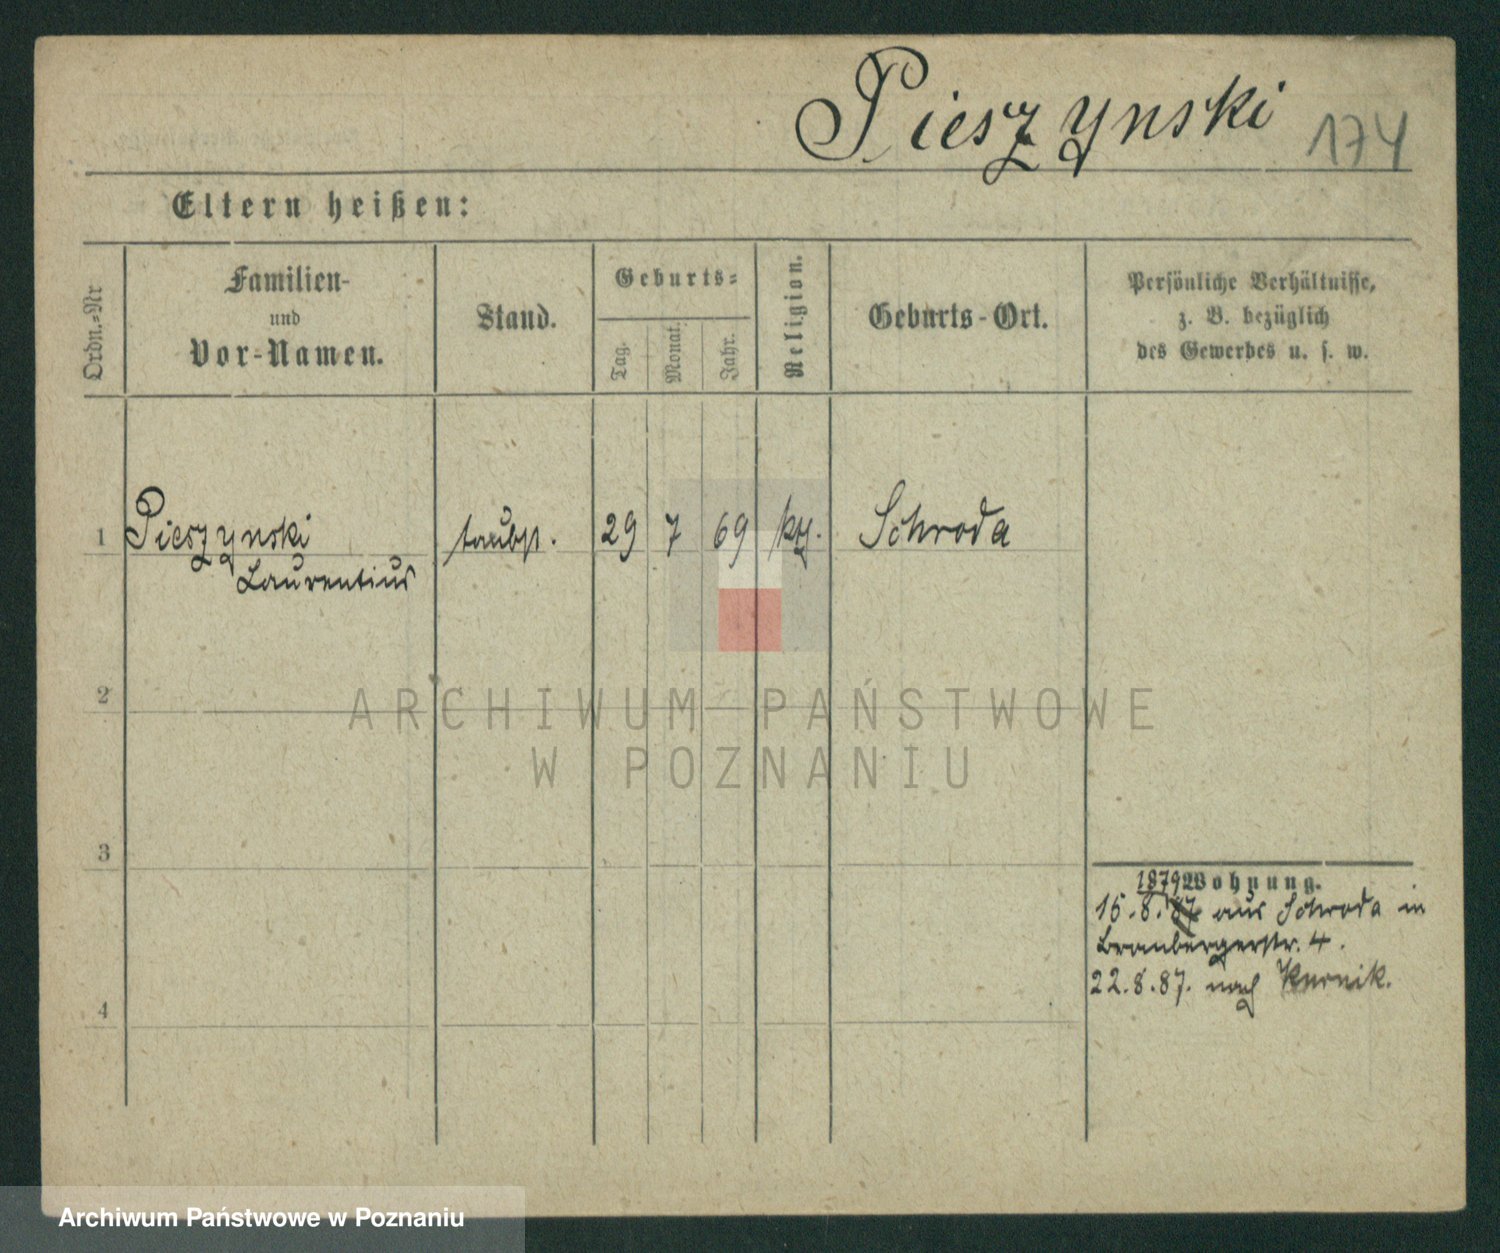 Pieszynski 174
Eltern heißen:
Ordn.-Nr
Familien-
und
Vor-Namen.
Stand.
Geburts-
Tag.
Monat.
Jahr.
Religion.
Geburts-Ort.
Persönliche Verhältnisse,
z. B. bezüglich
des Gewerbes u. s. w.
1 Pieszynski taubst. 29 7 69 Schroda
Laurentius
2
ARCHIWUM PAŃSTWOWE
W POZNANIU
3
1879 Wohnung.
15.8.87 aus Schroda in
Brombergerstr. 4.
22.8.87. nach Kurnik.
4
Archiwum Państwowe w Poznaniu